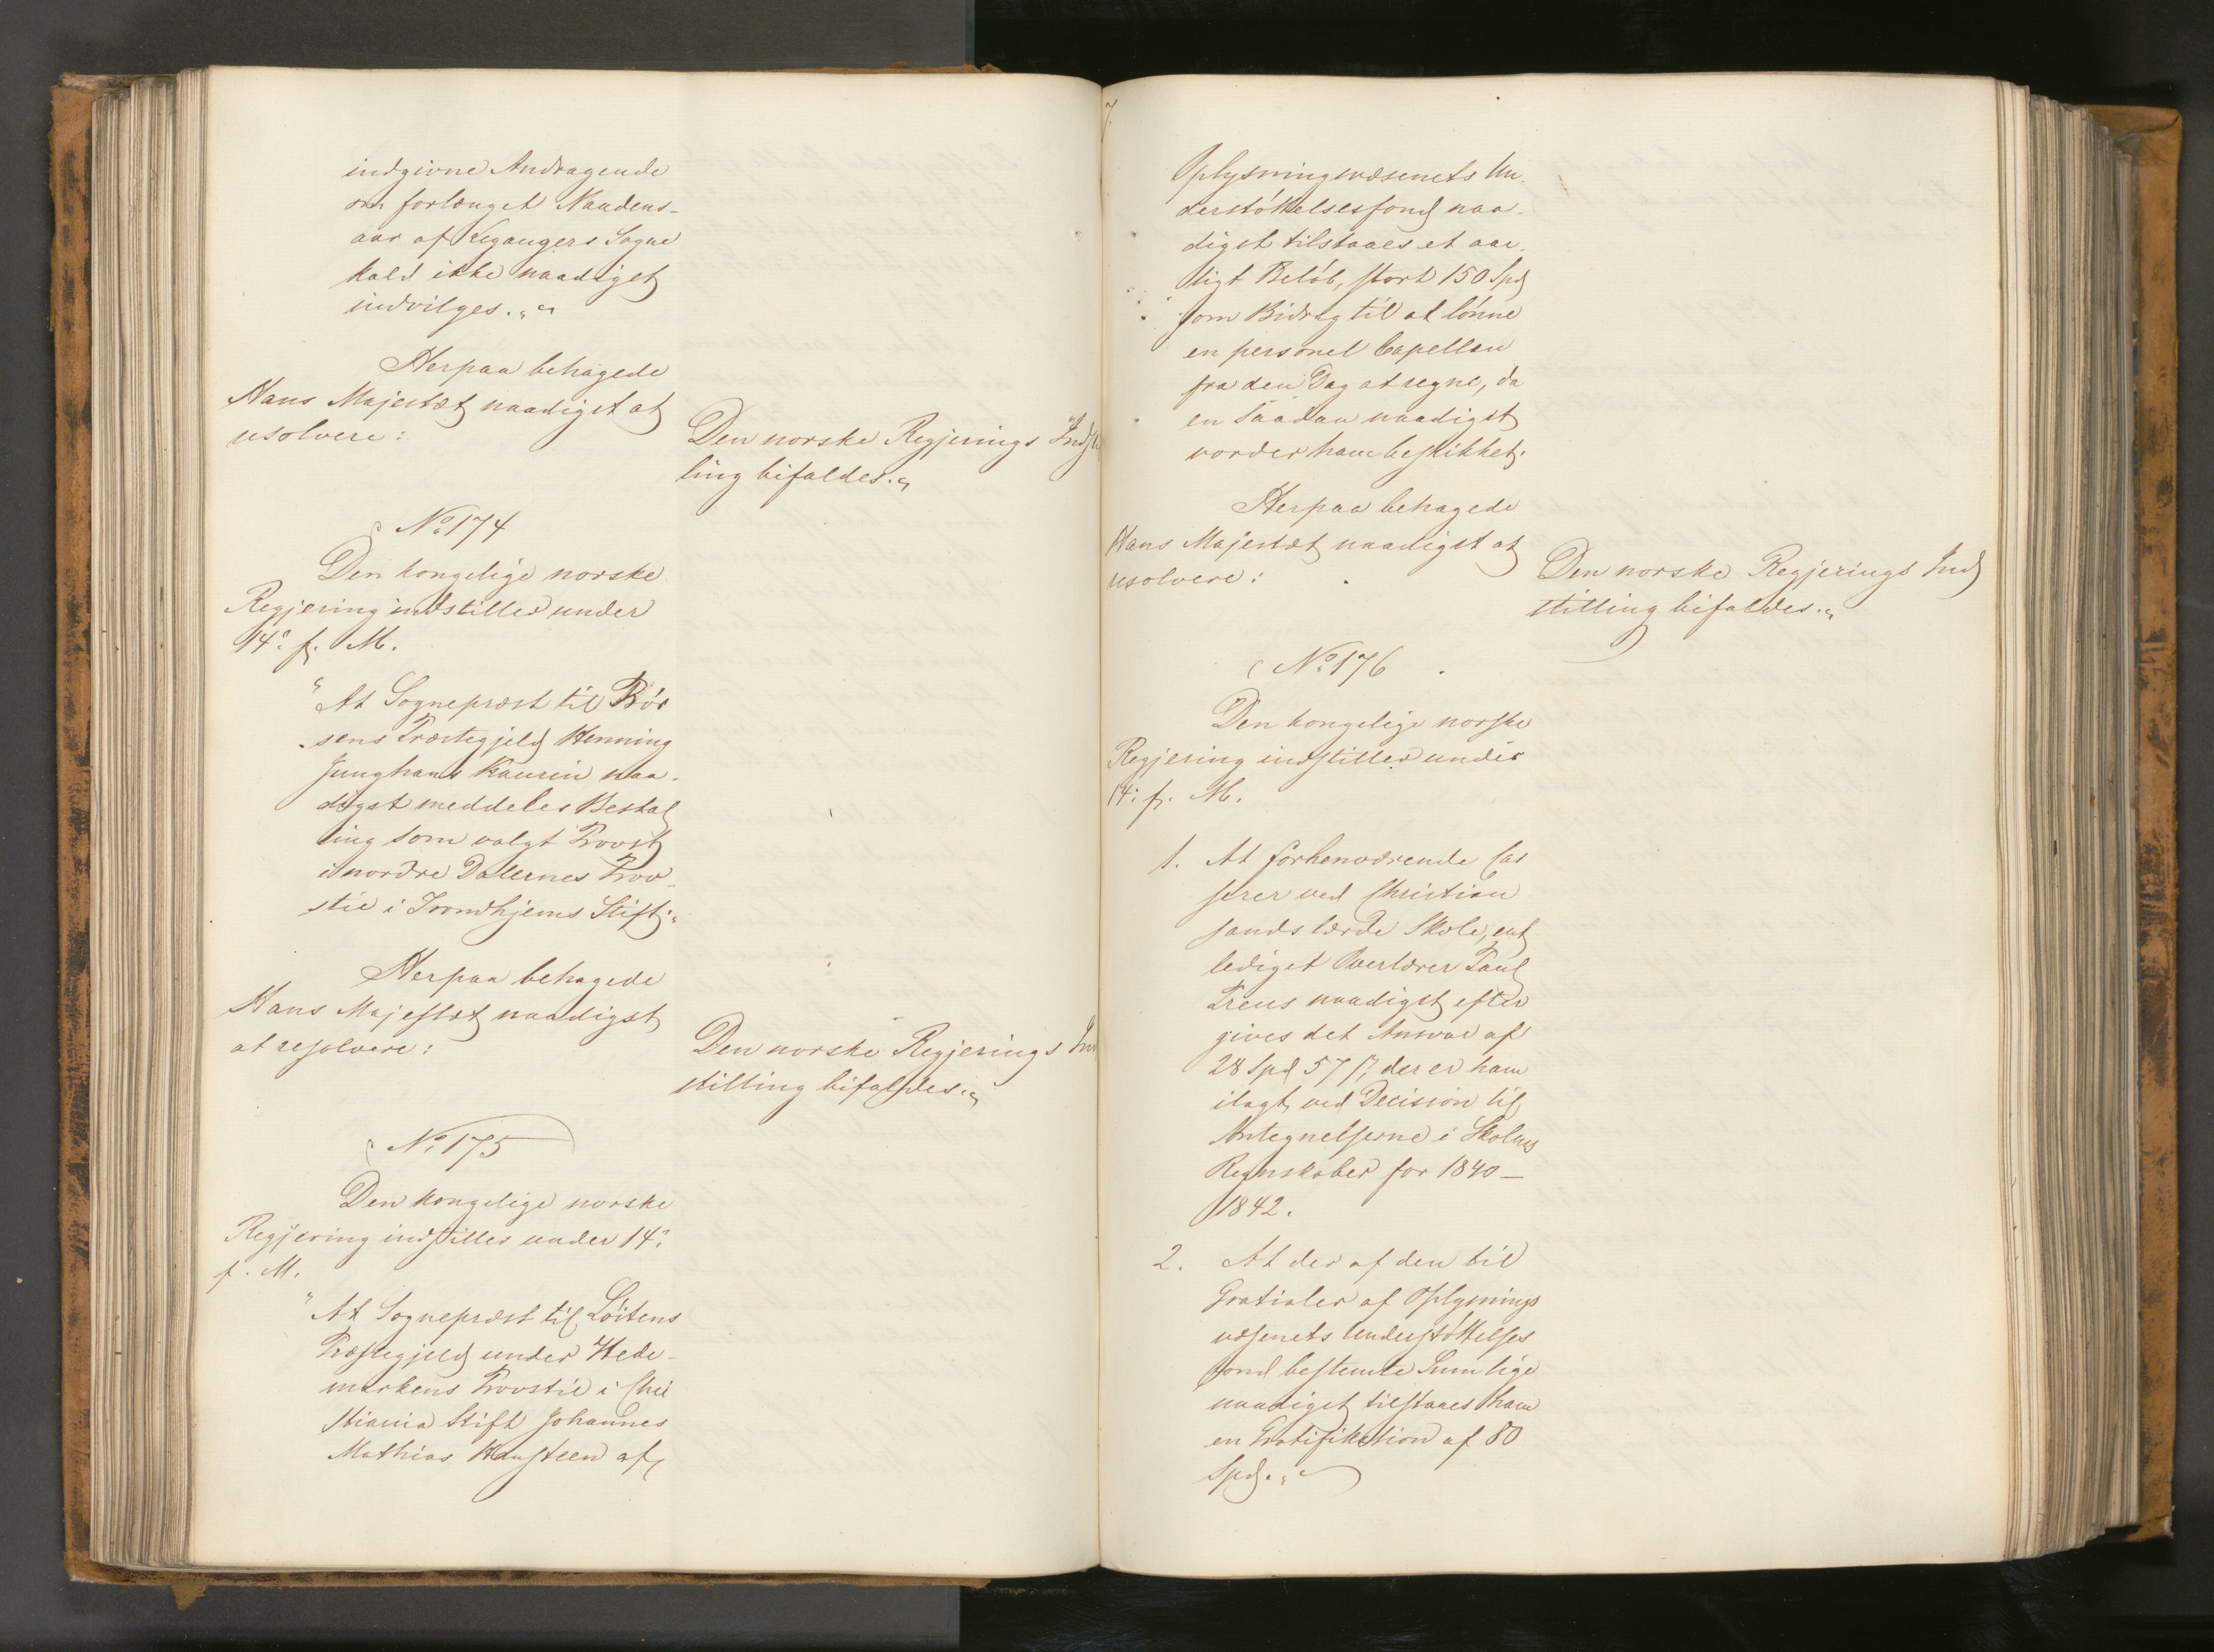 indgivne Andragende
om forlænget Naadens-
aar af Leganger Sogne
kald ikke naadigst
indvilges."
Herpaa behagede
Hans Majestæt naadigst at
resolvere:
Den norske Regjerings Indstil
ling bifaldes."
No. 174
Den kongelige norske
Regjering indstiller under
14de f. M.
"At Sognepræst til Bør
sens Præstegjeld Henning
Junghans Kaurin naa-
digst meddeles Bestal
ling som valgt Provst
i nordre Dalernes Prov-
stie i Trondhjems Stift."
Herpaa behagede
Hans Majestæt naadigst
at resolvere:
Den norske Regjerings Ind
stilling bifaldes."
No. 175
Den kongelige norske
Regjering indstiller under 14de
f. M.
"At Sognepræst til Löitens
Præstegjeld under Hede-
markens Provstie i Chri
stiania Stift Johannes
Mathias Hansteen af
Oplysningsvæsenets Un-
derstøttelsesfond naa-
digst tilstaaes et aar-
ligt Beløb, stort 150 Spd
som Bidrag til at lønne
en personel Capellan
fra den Dag at regne, da
en Saadan naadigst
vorder ham beskikket.
Herpaa behagede
Hans Majestæt naadigst at
resolvere:
Den norske Regjerings Ind
stilling bifaldes."
No. 176
Den kongelige norske
Regjering indstiller under
14de f. M.
1. At forhenværende Cas
serer ved Christian
sands lærde Skole, ent
lediget Overlærer Paul
Irens naadigst efter
gives det Ansvar af
28 Spd 57 ß, der er ham
ilagt ved Decision til
Antegnelserne i Skolens
Regnskaber for 1840-
1842.
2. At der af den til
Gratialer af Oplysnings
væsenets Understøttelses
fond bestemte Sum lige
naadigst tilstaaes ham
en Gratifikation af 80
Spd."